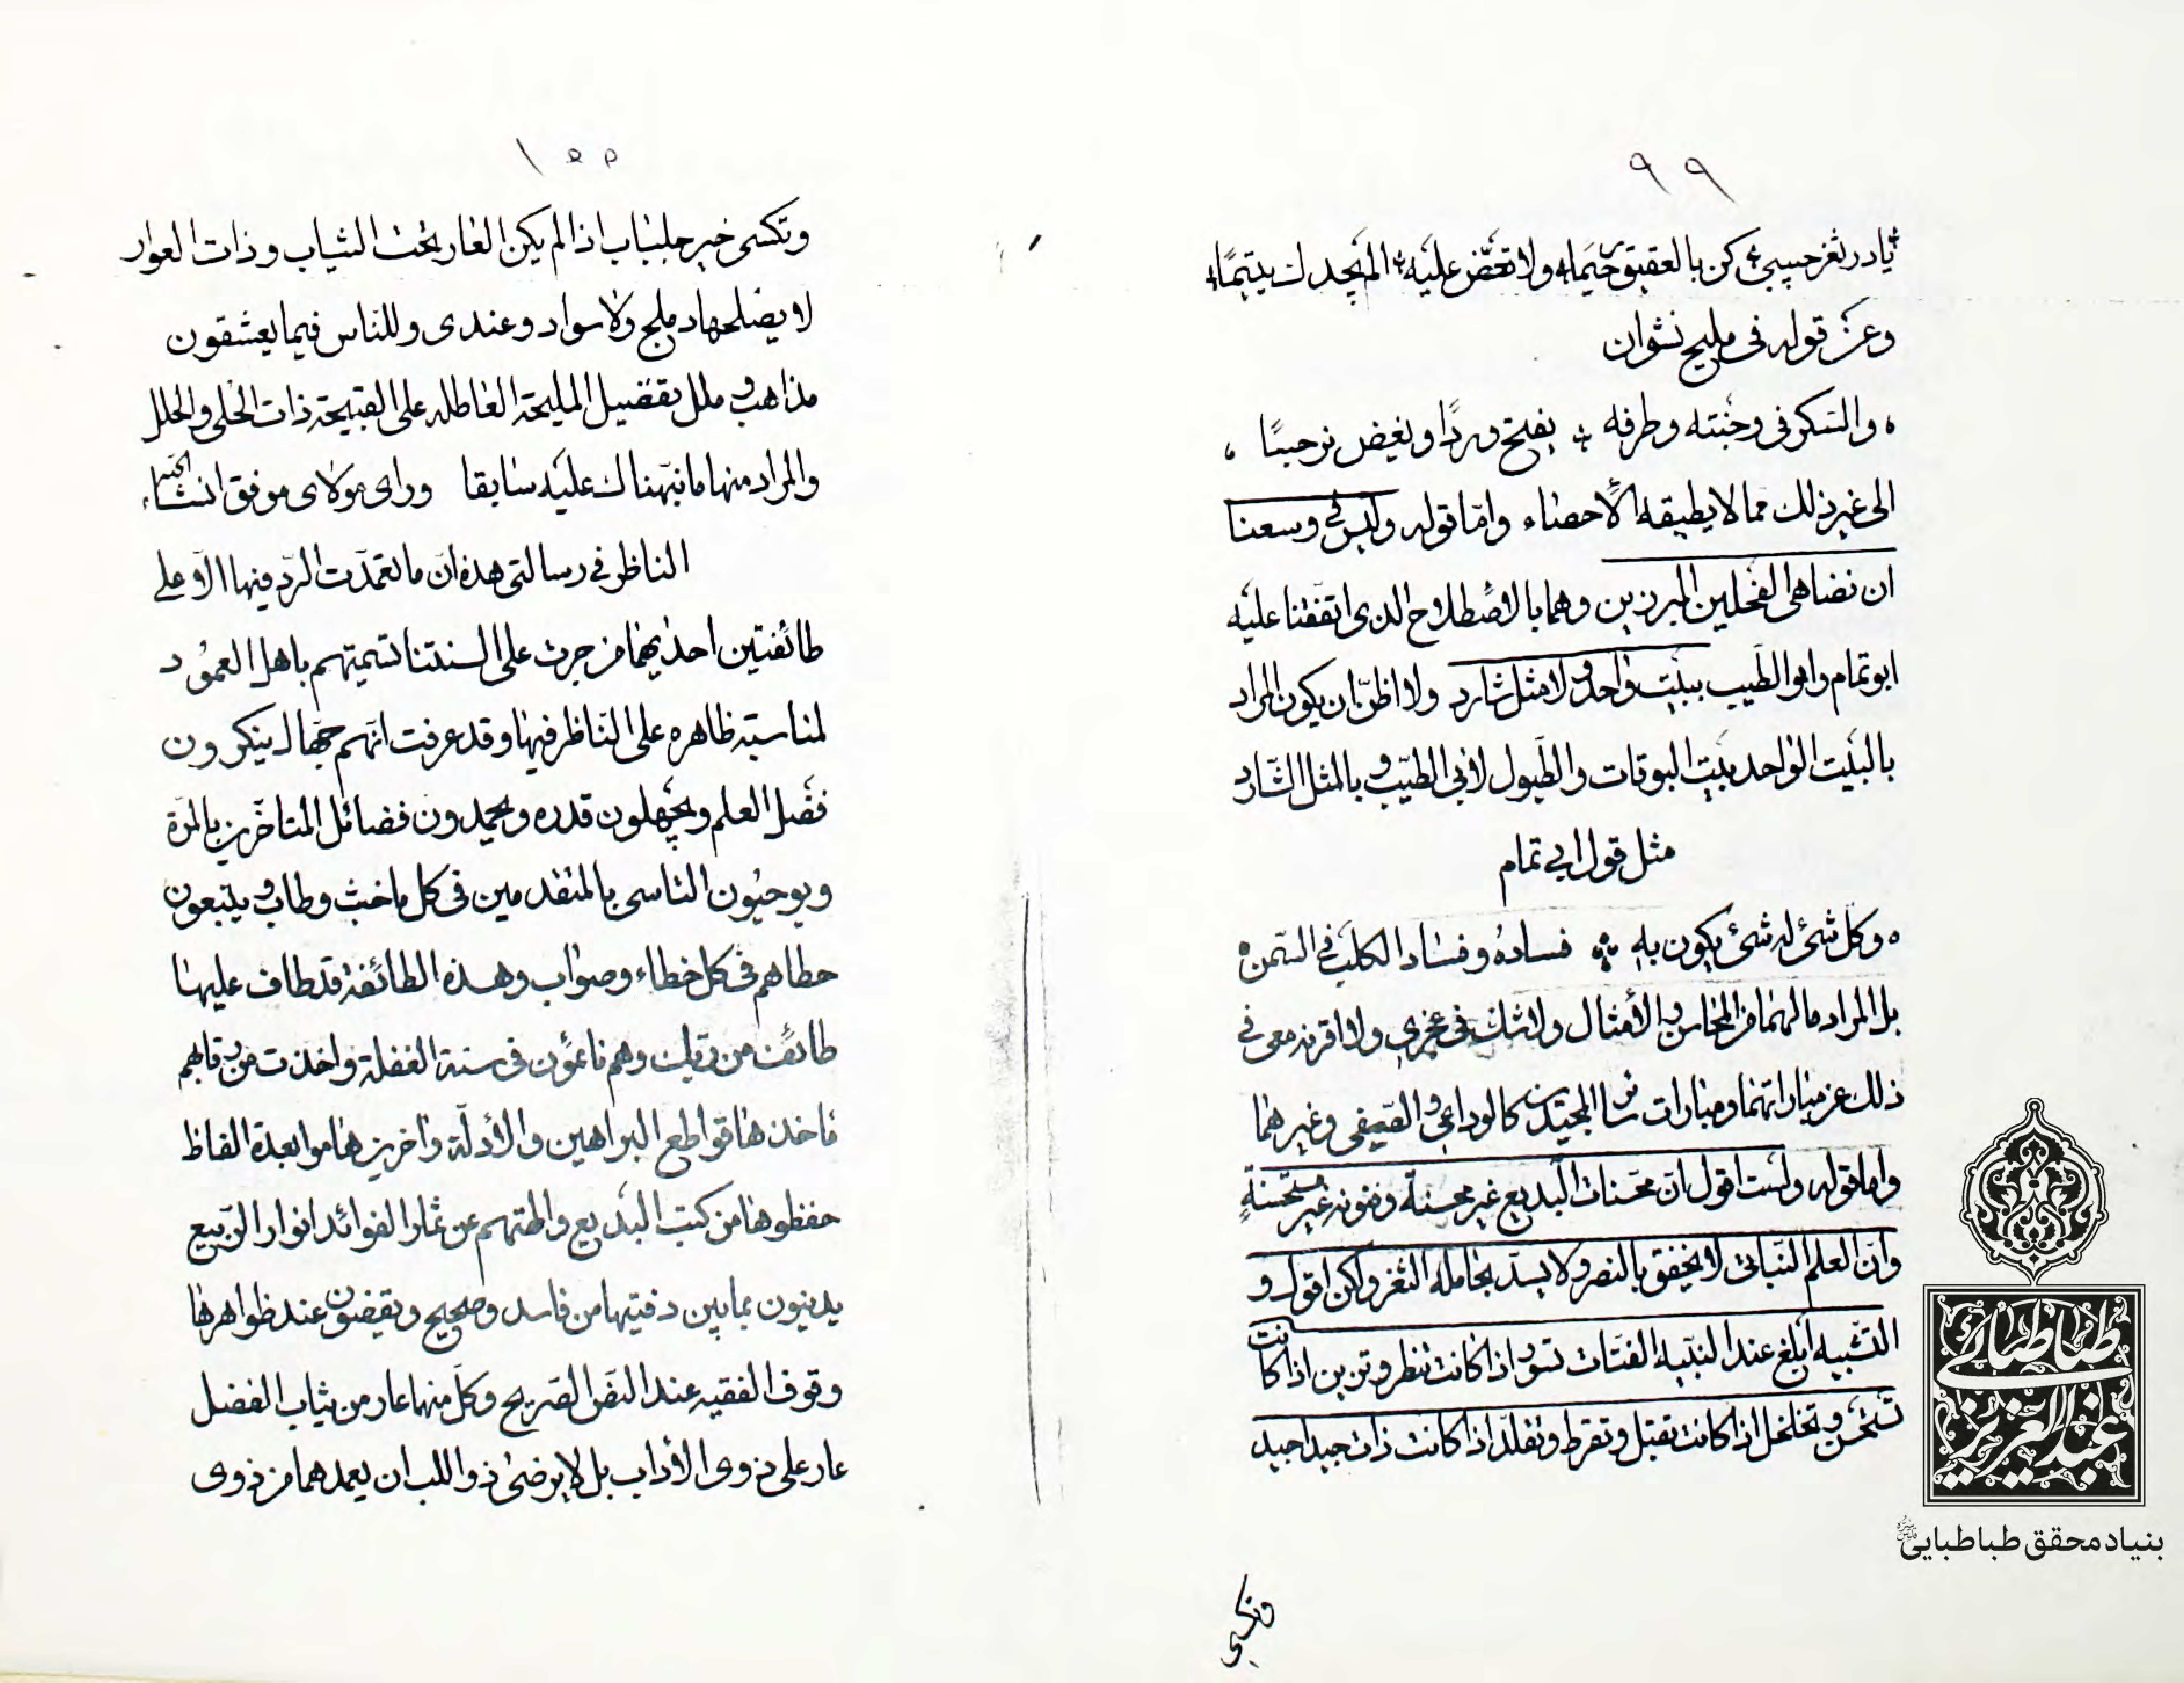 ٩٩
يا در ثغر حبيبي كن بالعقيق رحيما ولا تحض عليه الم يجدك يتيما
وعز قوله في مليح نشوان
والسكر في وجنته وطرفه يفتح وردا ويغيض نرجسا
الى غير ذلك مما لا يطيقه الاحصاء واما قوله وليس في وسعنا
ان نضاهى الفحلين المبرزين وهما بالاصطلاح الذى اتفقنا عليه
ابو تمام وابو الطيب ببيت واحد ولا مثل شارد ولا اظن ان يكون المراد
بالبيت الواحد بيت البوقات والطبول لابي الطيب وبالمثل الشارد
مثل قول ابي تمام
وكل شئ له شئ يكون به فساده وفساد الكلب في السمن
بل المراد مالهما من المحاسن والامثال ولا شك في عجزي ولا اقرنه معى في
ذلك عن مباراتهما ومبارات سائر المجيدين كالوداعي والصيفي وغيرهما
واما قوله ولست اقول ان محسنات البديع غير محسنة وفنونه غير مستحسنة
وان العلم النباتى لا يخفق بالنصر ولا يسد بحامله الثغر ولكن اقول و
التشبيه ابلغ عند النبيه الفتات تسور اذا كانت تنظر وتزين اذا كانت
تستحسن وتخلخل اذا كانت تقبل وتقرط وتقلد اذا كانت ذات جيدا جيد
وتكسى
١٠٠
وتكسى خير جلباب اذا لم يكن العار تحت الثياب وذات العوار
لا يصلحها دملج ولا سوار وعندى وللناس فيما يعشقون
مذاهب وملل تفضيل المليحة العاطله على القبيحة ذات الحلى والحلل
والمراد منها ما نبهناك عليه سابقا وراى مولاى موفق انشاء
الناظر في رسالتى هذه ان ما تعمدت الرد فيها الا على
طائفتين احديهما من جرت على السنتنا تسميتهم باهل العمود
لمناسبة ظاهره على الناظر فيها وقد عرفت انهم جهال ينكرون
فضل العلم ويجهلون قدره ويجمدون فضائل المتاخرين بالمرة
ويوجبون التاسى بالمتقدمين في كل ما خبث وطاب ويتبعون
خطاهم في كل خطاء وصواب وهذه الطائفة قد طاف عليها
طائف من ربك وهم نائمون في سنة الغفلة واخذت من رقابهم
ماخذها قواطع البراهين والادلة واخرين هاموا بعدة الفاظ
حفظوها من كتب البديع والهتهم عن ثمار الفوائد انوار الربيع
يدينون بما بين دفتيها من فاسد وصحيح ويقفون عند ظواهرها
وقوف الفقيه عند النص الصريح وكل منهما عار من ثياب الفضل
عار على ذوى الاداب بل لا يرضى ذو اللب ان يعدهما من ذوى
طباطبائى
عبدالعزيز
بنیاد محقق طباطبایی